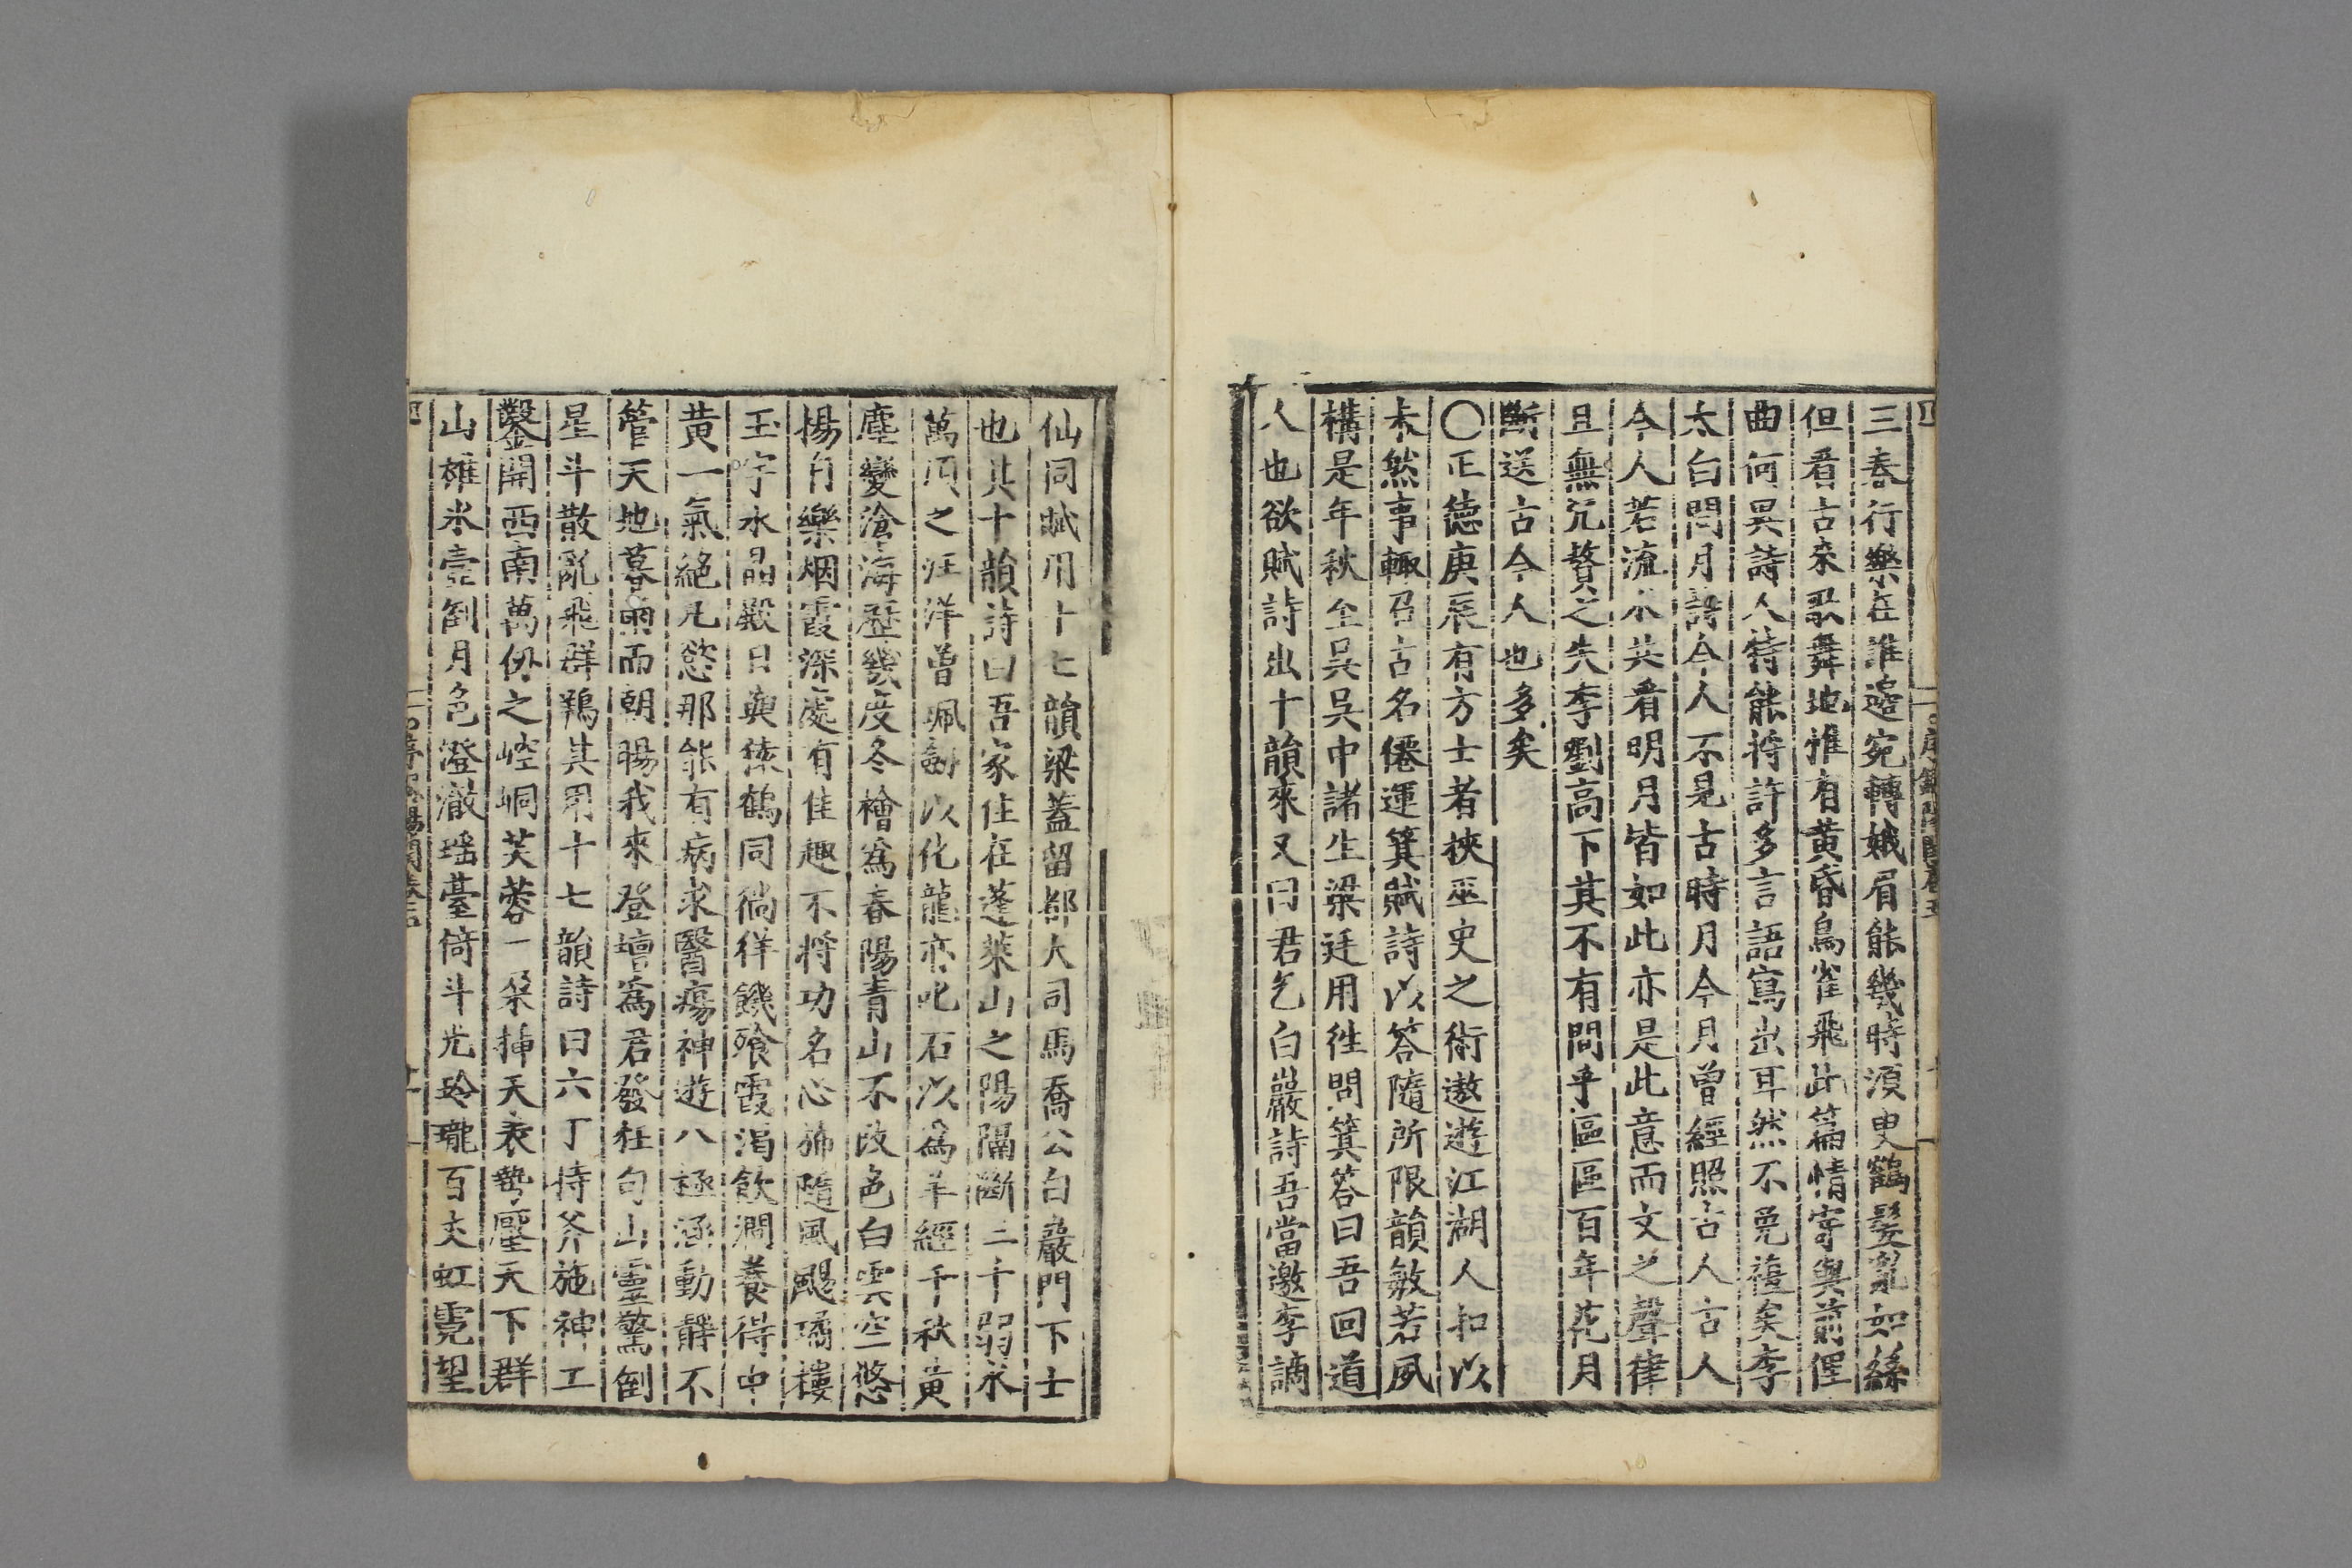 三春行樂在誰邉宛轉娥眉能幾時湏臾鶴髮亂如絲
但看古來歌舞地惟有黄昏鳥雀飛此篇情寄與前偓
曲何異詩人特能將許多言語寫出耳然不免複矣李
太白問月詩今人不見古時月今月曾經照古人古人
今人若流水共看明月皆如此亦是此意而文之聲律
且無冗贅之失李劉高下其不有間乎區區百年花月
斷送古今人也多矣
〇正德庚辰有方士者挾巫史之術遨遊江湖人扣以
未然事輙召古名僊運箕賦詩以答隨所限韻敏若夙
構是年秋至吳吳中諸生梁廷用徃問箕答曰吾回道
人也欲賦詩出十韻來又曰君乞白巖詩吾當邀李謫
仙同賦用十七韻梁蓋留都大司馬喬公白巖門下士
也其十韻詩曰吾家住在蓬萊山之陽隔斷三千弱水
萬頃之汪洋曾珮劒以化龍亦叱石以爲羊經千秋黄
塵變滄海歷幾度冬檜爲春陽青山不改色白雲空悠
揚自樂烟霞深處有佳趣不將功名心肺隨風颺璚樓
玉宇水晶殿日與猿鶴同徜徉饑飡霞渴飲澗養得中
黄一氣絕凡慾那能有病求醫瘍神遊八極涵動静不
管天地暮雨而朝暘我來登壇爲君發狂句山靈驚倒
星斗散亂飛群鵶其用十七韻詩曰六丁持斧施神工
鑿開西南萬仭之崆峒芙蓉一朶揷天表勢壓天下群
山雄氷壺倒月色澄澈瑶臺倚斗光玲瓏百丈虹霓望